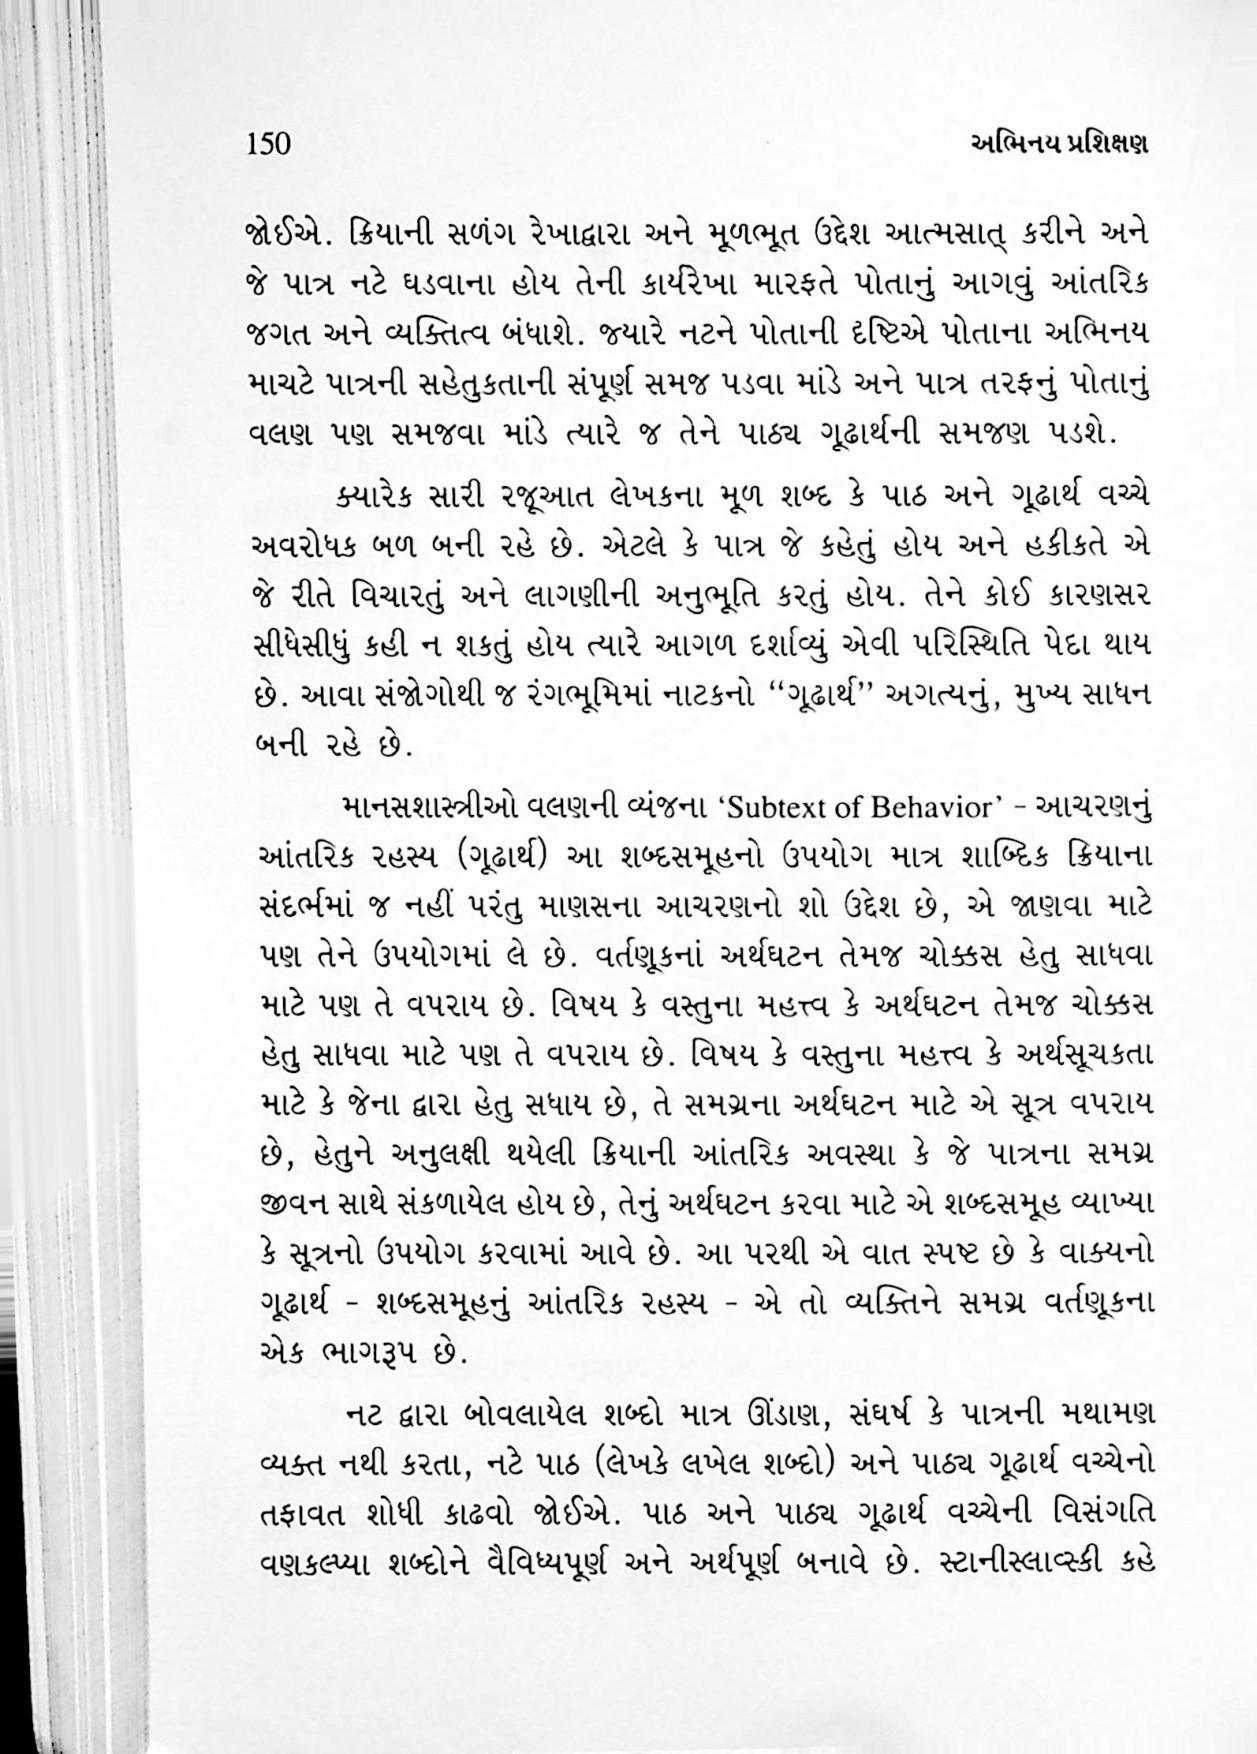 150 અભિનય પ્રશિક્ષણ
જોઈએ. ક્રિયાની સળંગ રેખાદ્વારા અને મૂળભૂત ઉદ્દેશ આત્મસાત્ કરીને અને
જે પાત્ર નટે ઘડવાના હોય તેની કાર્યરેખા મારફતે પોતાનું આગવું આંતરિક
જગત અને વ્યક્તિત્વ બંધાશે. જ્યારે નટને પોતાની દૃષ્ટિએ પોતાના અભિનય
માચટે પાત્રની સહેતુકતાની સંપૂર્ણ સમજ પડવા માંડે અને પાત્ર તરફનું પોતાનું
વલણ પણ સમજવા માંડે ત્યારે જ તેને પાઠ્ય ગૂઢાર્થની સમજણ પડશે.
ક્યારેક સારી રજૂઆત લેખકના મૂળ શબ્દ કે પાઠ અને ગૂઢાર્થ વચ્ચે
અવરોધક બળ બની રહે છે. એટલે કે પાત્ર જે કહેતું હોય અને હકીકતે એ
જે રીતે વિચારતું અને લાગણીની અનુભૂતિ કરતું હોય. તેને કોઈ કારણસર
સીધેસીધું કહી ન શકતું હોય ત્યારે આગળ દર્શાવ્યું એવી પરિસ્થિતિ પેદા થાય
છે. આવા સંજોગોથી જ રંગભૂમિમાં નાટકનો “ગૂઢાર્થ” અગત્યનું, મુખ્ય સાધન
બની રહે છે.
માનસશાસ્ત્રીઓ વલણની વ્યંજના ‘Subtext of Behavior’ – આચરણનું
આંતરિક રહસ્ય (ગૂઢાર્થ) આ શબ્દસમૂહનો ઉપયોગ માત્ર શાબ્દિક ક્રિયાના
સંદર્ભમાં જ નહીં પરંતુ માણસના આચરણનો શો ઉદ્દેશ છે, એ જાણવા માટે
પણ તેને ઉપયોગમાં લે છે. વર્તણૂકનાં અર્થઘટન તેમજ ચોક્કસ હેતુ સાધવા
માટે પણ તે વપરાય છે. વિષય કે વસ્તુના મહત્ત્વ કે અર્થઘટન તેમજ ચોક્કસ
હેતુ સાધવા માટે પણ તે વપરાય છે. વિષય કે વસ્તુના મહત્ત્વ કે અર્થસૂચકતા
માટે કે જેના દ્વારા હેતુ સધાય છે, તે સમગ્રના અર્થઘટન માટે એ સૂત્ર વપરાય
છે, હેતુને અનુલક્ષી થયેલી ક્રિયાની આંતરિક અવસ્થા કે જે પાત્રના સમગ્ર
જીવન સાથે સંકળાયેલ હોય છે, તેનું અર્થઘટન કરવા માટે એ શબ્દસમૂહ વ્યાખ્યા
કે સૂત્રનો ઉપયોગ કરવામાં આવે છે. આ પરથી એ વાત સ્પષ્ટ છે કે વાક્યનો
ગૂઢાર્થ – શબ્દસમૂહનું આંતરિક રહસ્ય – એ તો વ્યક્તિને સમગ્ર વર્તણૂકના
એક ભાગરૂપ છે.
નટ દ્વારા બોવલાયેલ શબ્દો માત્ર ઊંડાણ, સંઘર્ષ કે પાત્રની મથામણ
વ્યક્ત નથી કરતા, નટે પાઠ (લેખકે લખેલ શબ્દો) અને પાઠ્ય ગૂઢાર્થ વચ્ચેનો
તફાવત શોધી કાઢવો જોઈએ. પાઠ અને પાઠ્ય ગૂઢાર્થ વચ્ચેની વિસંગતિ
વણકલ્પ્યા શબ્દોને વૈવિધ્યપૂર્ણ અને અર્થપૂર્ણ બનાવે છે. સ્ટાનીસ્લાવ્સ્કી કહે